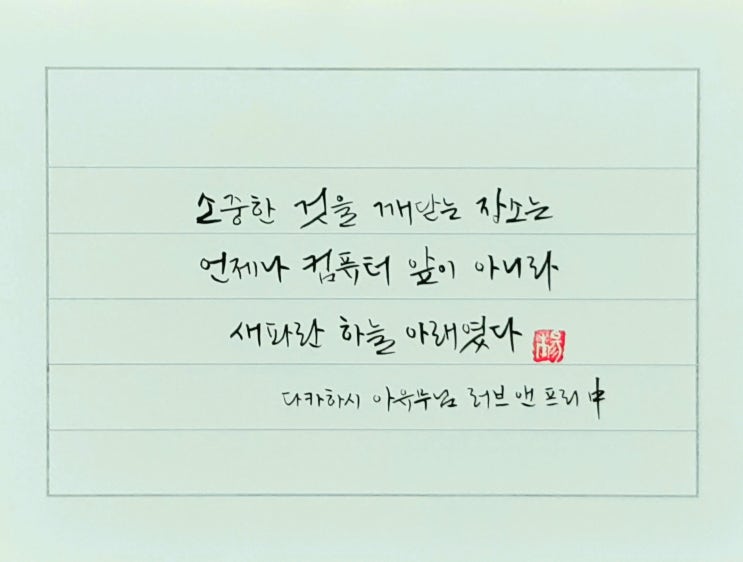 소중한 것을 깨닫는 장소는
언제나 컴퓨터 앞이 아니라
새파란 하늘 아래였다
다카하시 아유무님 러브 앤 프리 中